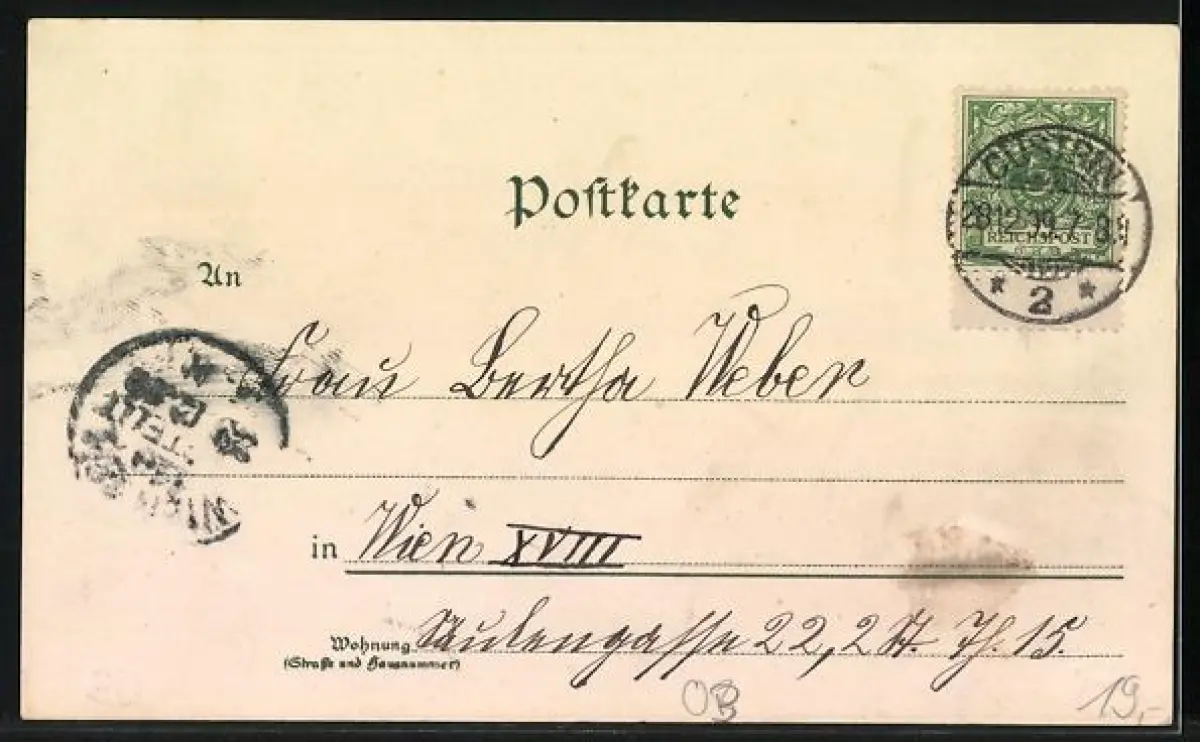 Postkarte
CÜSTRIN
28.12.99. 7-8
REICHSPOST
* 2 *
An
Frau Bertha Weber
WIEN
in Wien XVIII
Wohnung Säulengasse 22, 2 St. Th. 15.
(Straße und Hausnummer)
OB
19,-